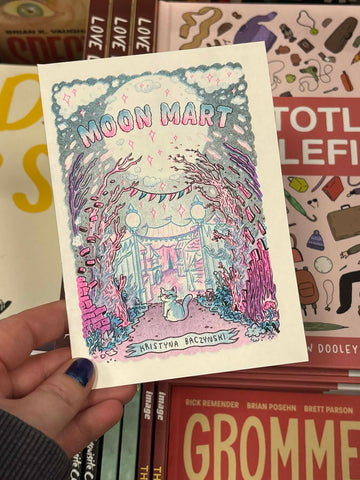 BRIAN K. VAUGHAN
LOVE
LOVE
LOVE
MOON MART
KRISTYNA BACZYNSKI
TOTL
LEFI
W DOOLEY
image
image
RICK REMENDER BRIAN POSEHN BRETT PARSON
GROMME